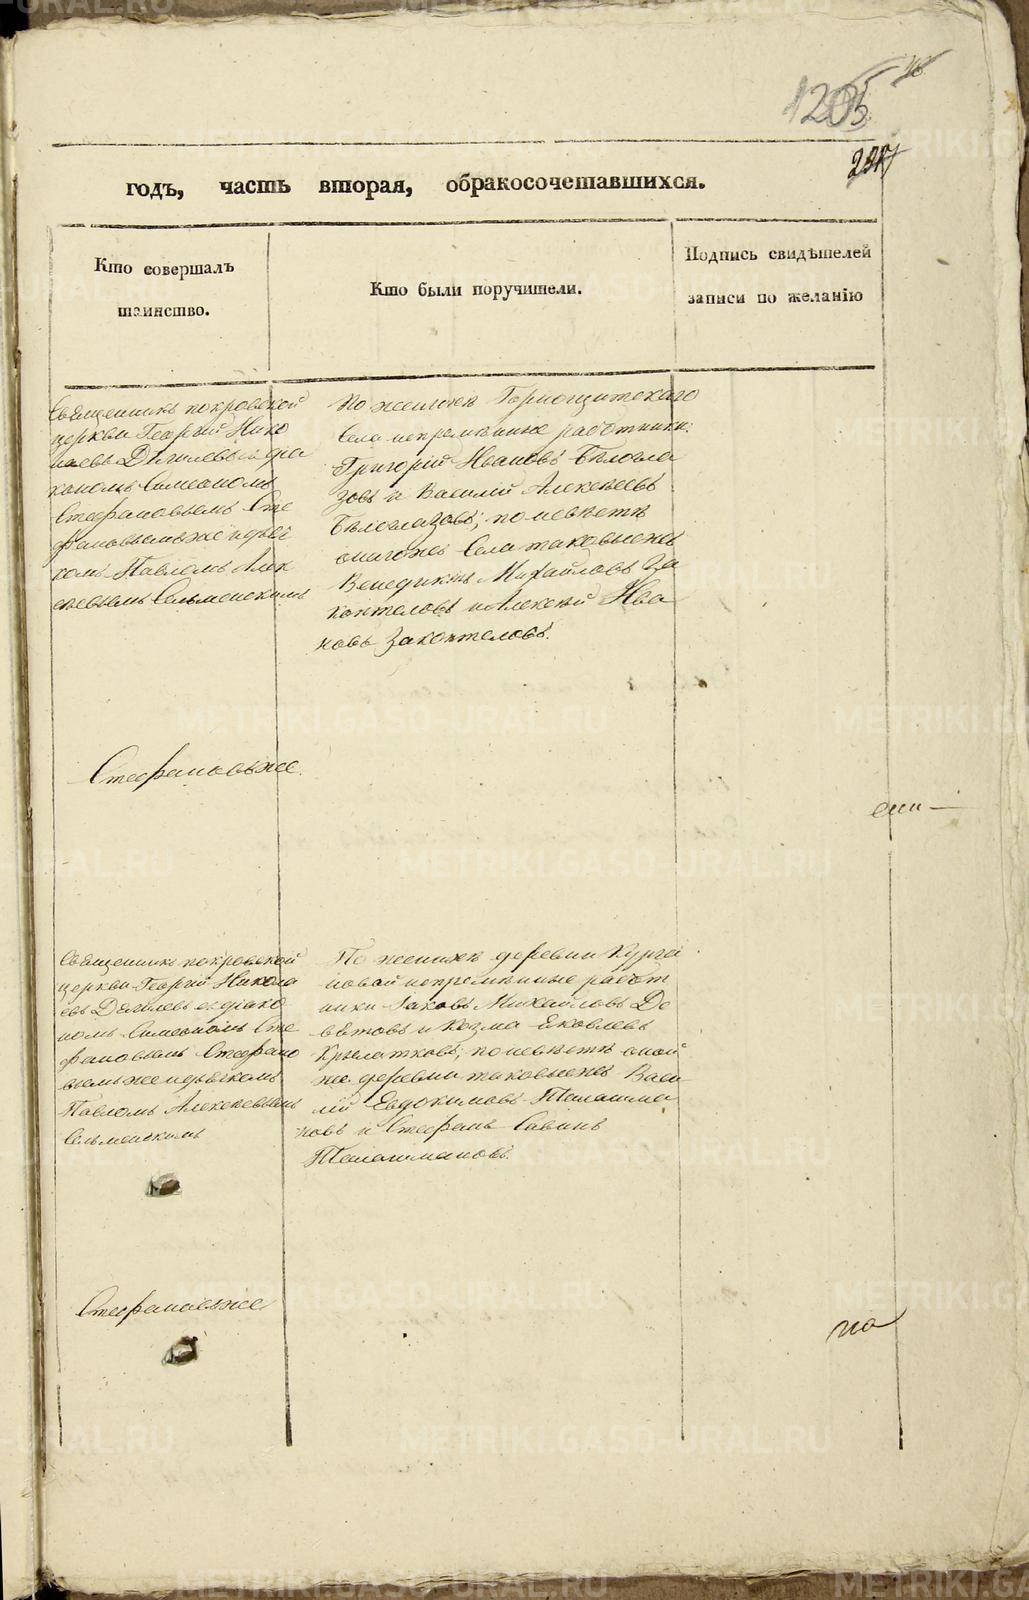 1205
годъ, часть вторая, обракосочетавшихся.
Кто совершалъ
таинство.
Кто были поручители.
Подпись свидѣтелей
записи по желанію
Священникъ покровской
церкви Георгій Нико
лаевъ Дягилевъ съ діа
кономъ Симеономъ
Стефановымъ Сте
фановымъ же и дьяч
комъ Павломъ Алек
сеевымъ Сельменскимъ
По женихѣ Горнощитскаго
Села непремѣнные работники:
Григорій Ивановъ Бѣлогла
зовъ и Василій Алексѣевъ
Бѣлоглазовъ; по невѣстѣ
онагожъ Села таковыежъ
Венедиктъ Михайловъ За
коптеловъ и Алексѣй Ива
новъ Закоптеловъ.
Стефановъ же.
Священникъ покровской
церкви Георгій Никола
евъ Дягилевъ съ діако
номъ Симеономъ Сте
фановымъ Стефано
вымъ же и дьячкомъ
Павломъ Алексѣевымъ
Сельменскимъ
По женихѣ деревни Курга
новой непремѣнные работ
ники Іаковъ Михайловъ Де
вѣтовъ и Козма Яковлевъ
Крылатковъ; по невѣстѣ оной
же деревни таковыежъ Васи
лій Евдокимовъ Талашма
новъ и Стефанъ Савинъ
Талашмановъ.
Стефановъ же
на
METRIKI.GASO-URAL.RU